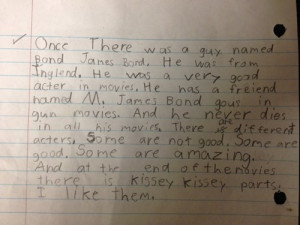 Once There was a guy named
Bond James Bond. He was from
Inglend. He was a very good
acter in movies. He has a freiend
named M. James Bond gous in
gun movies. And he never dies
in all his movies. There is different
acters. Some are not good. Some are
good. Some are amazing.
And at the end of the movies
there is kissey kissey parts.
I like them.